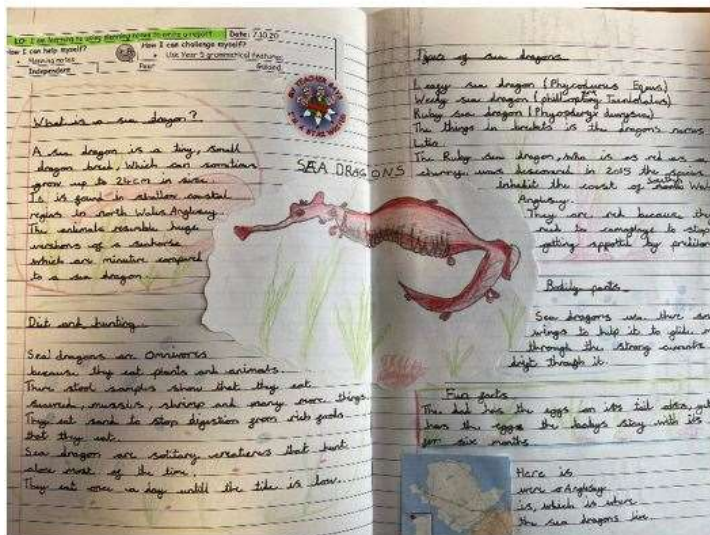 LO: I am learning to using planning notes to write a report
Date: 7.10.20
How I can help myself?
How I can challenge myself?
Planning notes
Use Year 5 grammatical features
Independent
Peer
Guided
MY TEACHER SAYS
I'M A STAR WRITER
What is a sea dragon?
A sea dragon is a tiny, small
dragon bred, Which can somtimes
grow up to 24cm in size.
It is found in shallow coastal
regins in north Wales Anglesey.
The animals resemble huge
versions of a seahorse
which are minuture compared
to a sea dragon.
Diet and hunting
Sea dragons are Omnivores
because they eat plants and animals.
There stool samples show that they eat
seaweed, mussels, shrimp and many more things.
They eat sand to stop digestion from rich foods
that they eat.
Sea dragon are solitary creatures that hunt
alone most of the time.
They eat once a day untill the tide is low.
SEA DRAGONS
Types of sea dragons
Leafy sea dragon (Phycodurus Eques)
Weedy sea dragon
Ruby sea dragon
The things in brackets is the dragons names
Latin
The Ruby sea dragon, who is as red as a
cherry was discovered in 2015 the species
inhabit the coast of Wales
Anglesey.
They are red because they
need to camoglage to stop
getting spottd by
Bodily parts
Sea dragons use there
wings to help it to glide
through the strong currents
drift through it.
Fun facts
The dad has the eggs on its tail also,
has the eggs the babys stay with its
for six months.
Here is
were Anglesey
is, which is where
the sea dragons live.